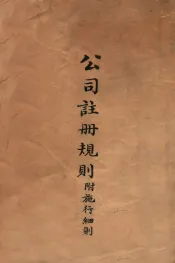 公司註冊規則附施行細則